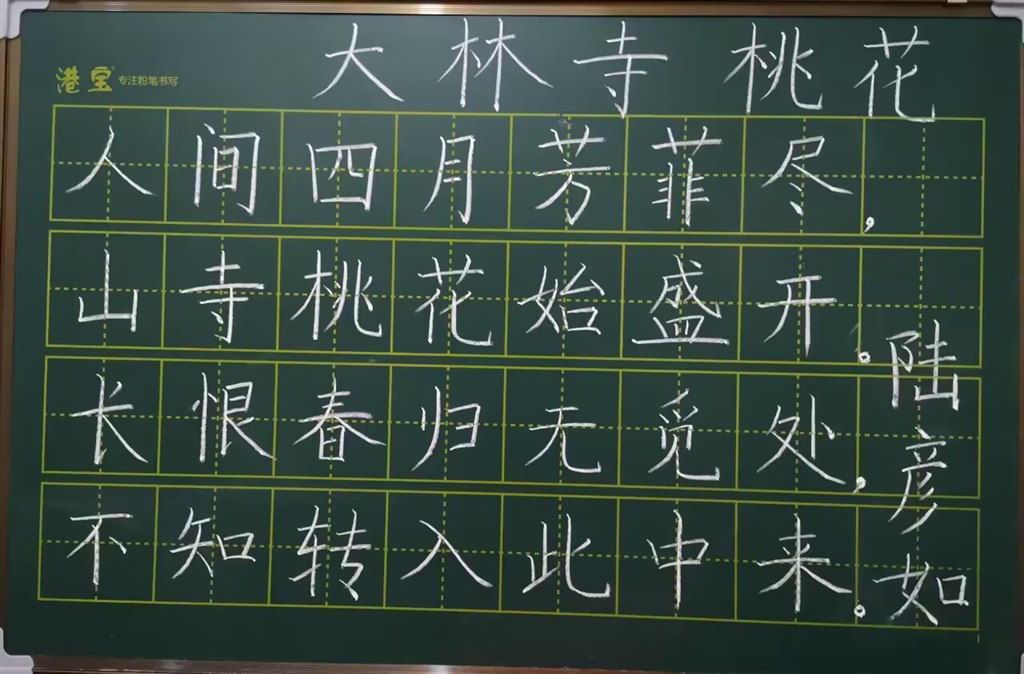 大林寺桃花
港宝 专注粉笔书写
人间四月芳菲尽，
山寺桃花始盛开。
长恨春归无觅处，
不知转入此中来。
陆彦如